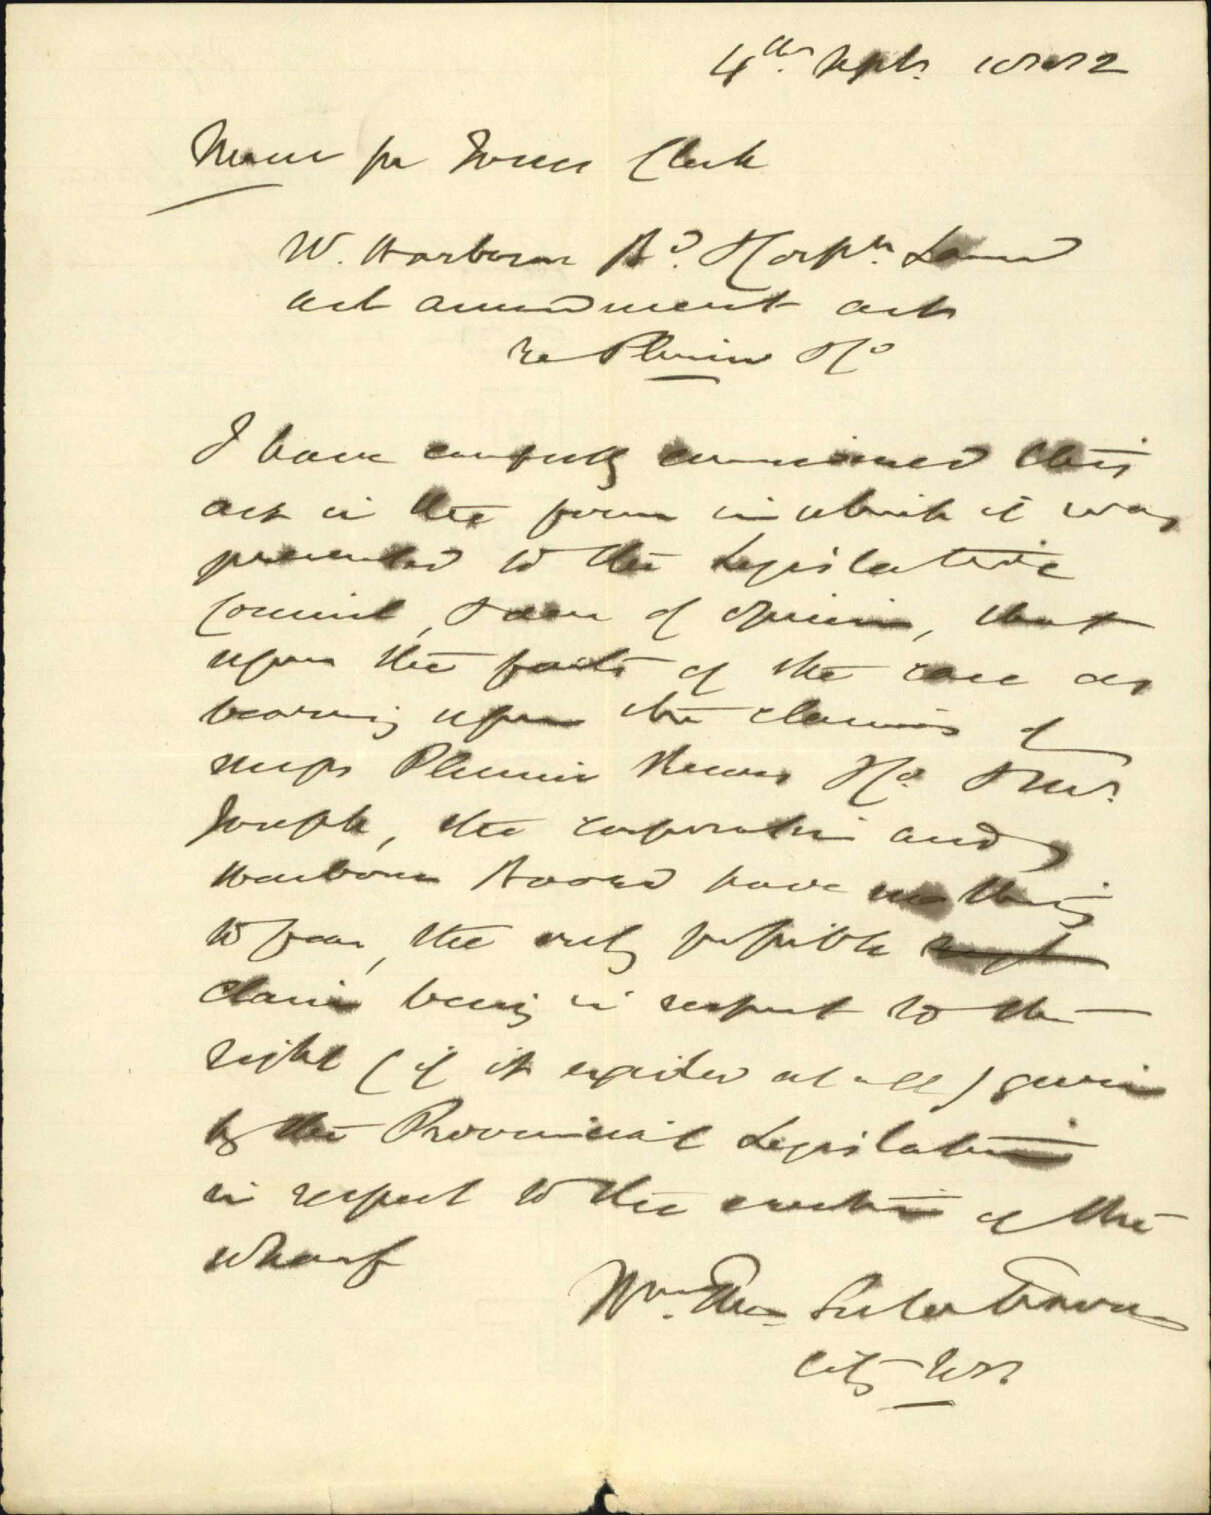 4th. Sept. 1882
Memo for Town Clerk
W. Harbour Bd. & Corpn. Land
act amendment act
re Plimmer & Co
I have carefully considered this
act in the form in which it was
presented to the Legislative
Council, & am of opinion, that
upon the facts of the case as
bearing upon the claims of
messrs Plimmer Reeves & Co. & Mr.
Joseph, the corporation and
Harbour Board have nothing
to fear, the only possible
claim being in respect to the
right (if it existed at all) given
by the Provincial Legislature
in respect to the erection of the
wharf
Wm. Thos. Locke Travers
City Solr.